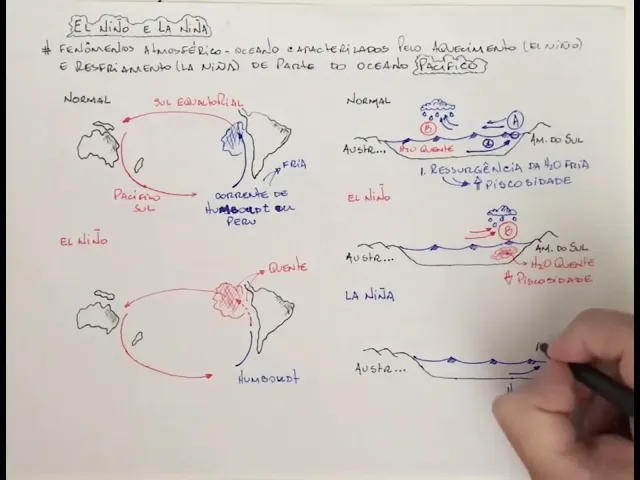 EL NIÑO E LA NIÑA
# FENÔMENOS ATMOSFÉRICO-OCEANO CARACTERIZADOS PELO AQUECIMENTO (EL NIÑO)
E RESFRIAMENTO (LA NIÑA) DE PARTE DO OCEANO PACÍFICO
NORMAL
SUL EQUATORIAL
FRIA
PACÍFICO
SUL
CORRENTE DE
HUMBOLDT OU
PERU
EL NIÑO
QUENTE
HUMBOLDT
NORMAL
B
A
1
AUSTR...
H2O QUENTE
AM. DO SUL
1. RESSURGÊNCIA DA H2O FRIA
↑ PISCOSIDADE
EL NIÑO
B
AUSTR...
AM. DO SUL
H2O QUENTE
↓ PISCOSIDADE
LA NIÑA
AUSTR...